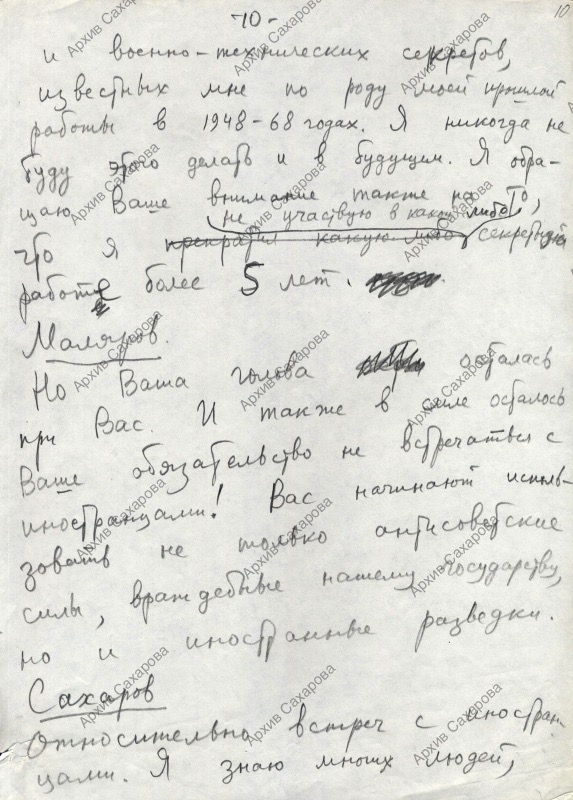 -10-
10
и военно-технических секретов,
известных мне по роду моей прошлой
работы в 1948-68 годах. Я никогда не
буду этого делать и в будущем. Я обра-
щаю Ваше внимание также на то,
не участвую в какой либо
что я прекратил какую либо секретной
работе более 5 лет.
Маляров.
Но Ваша голова осталась
при Вас. И также в силе осталось
Ваше обязательство не встречаться с
иностранцами! Вас начинают исполь-
зовать не только антисоветские
силы, враждебные нашему государству,
но и иностранные разведки.
Сахаров
Относительно встреч с иностран-
цами. Я знаю многих людей,
Архив Сахарова